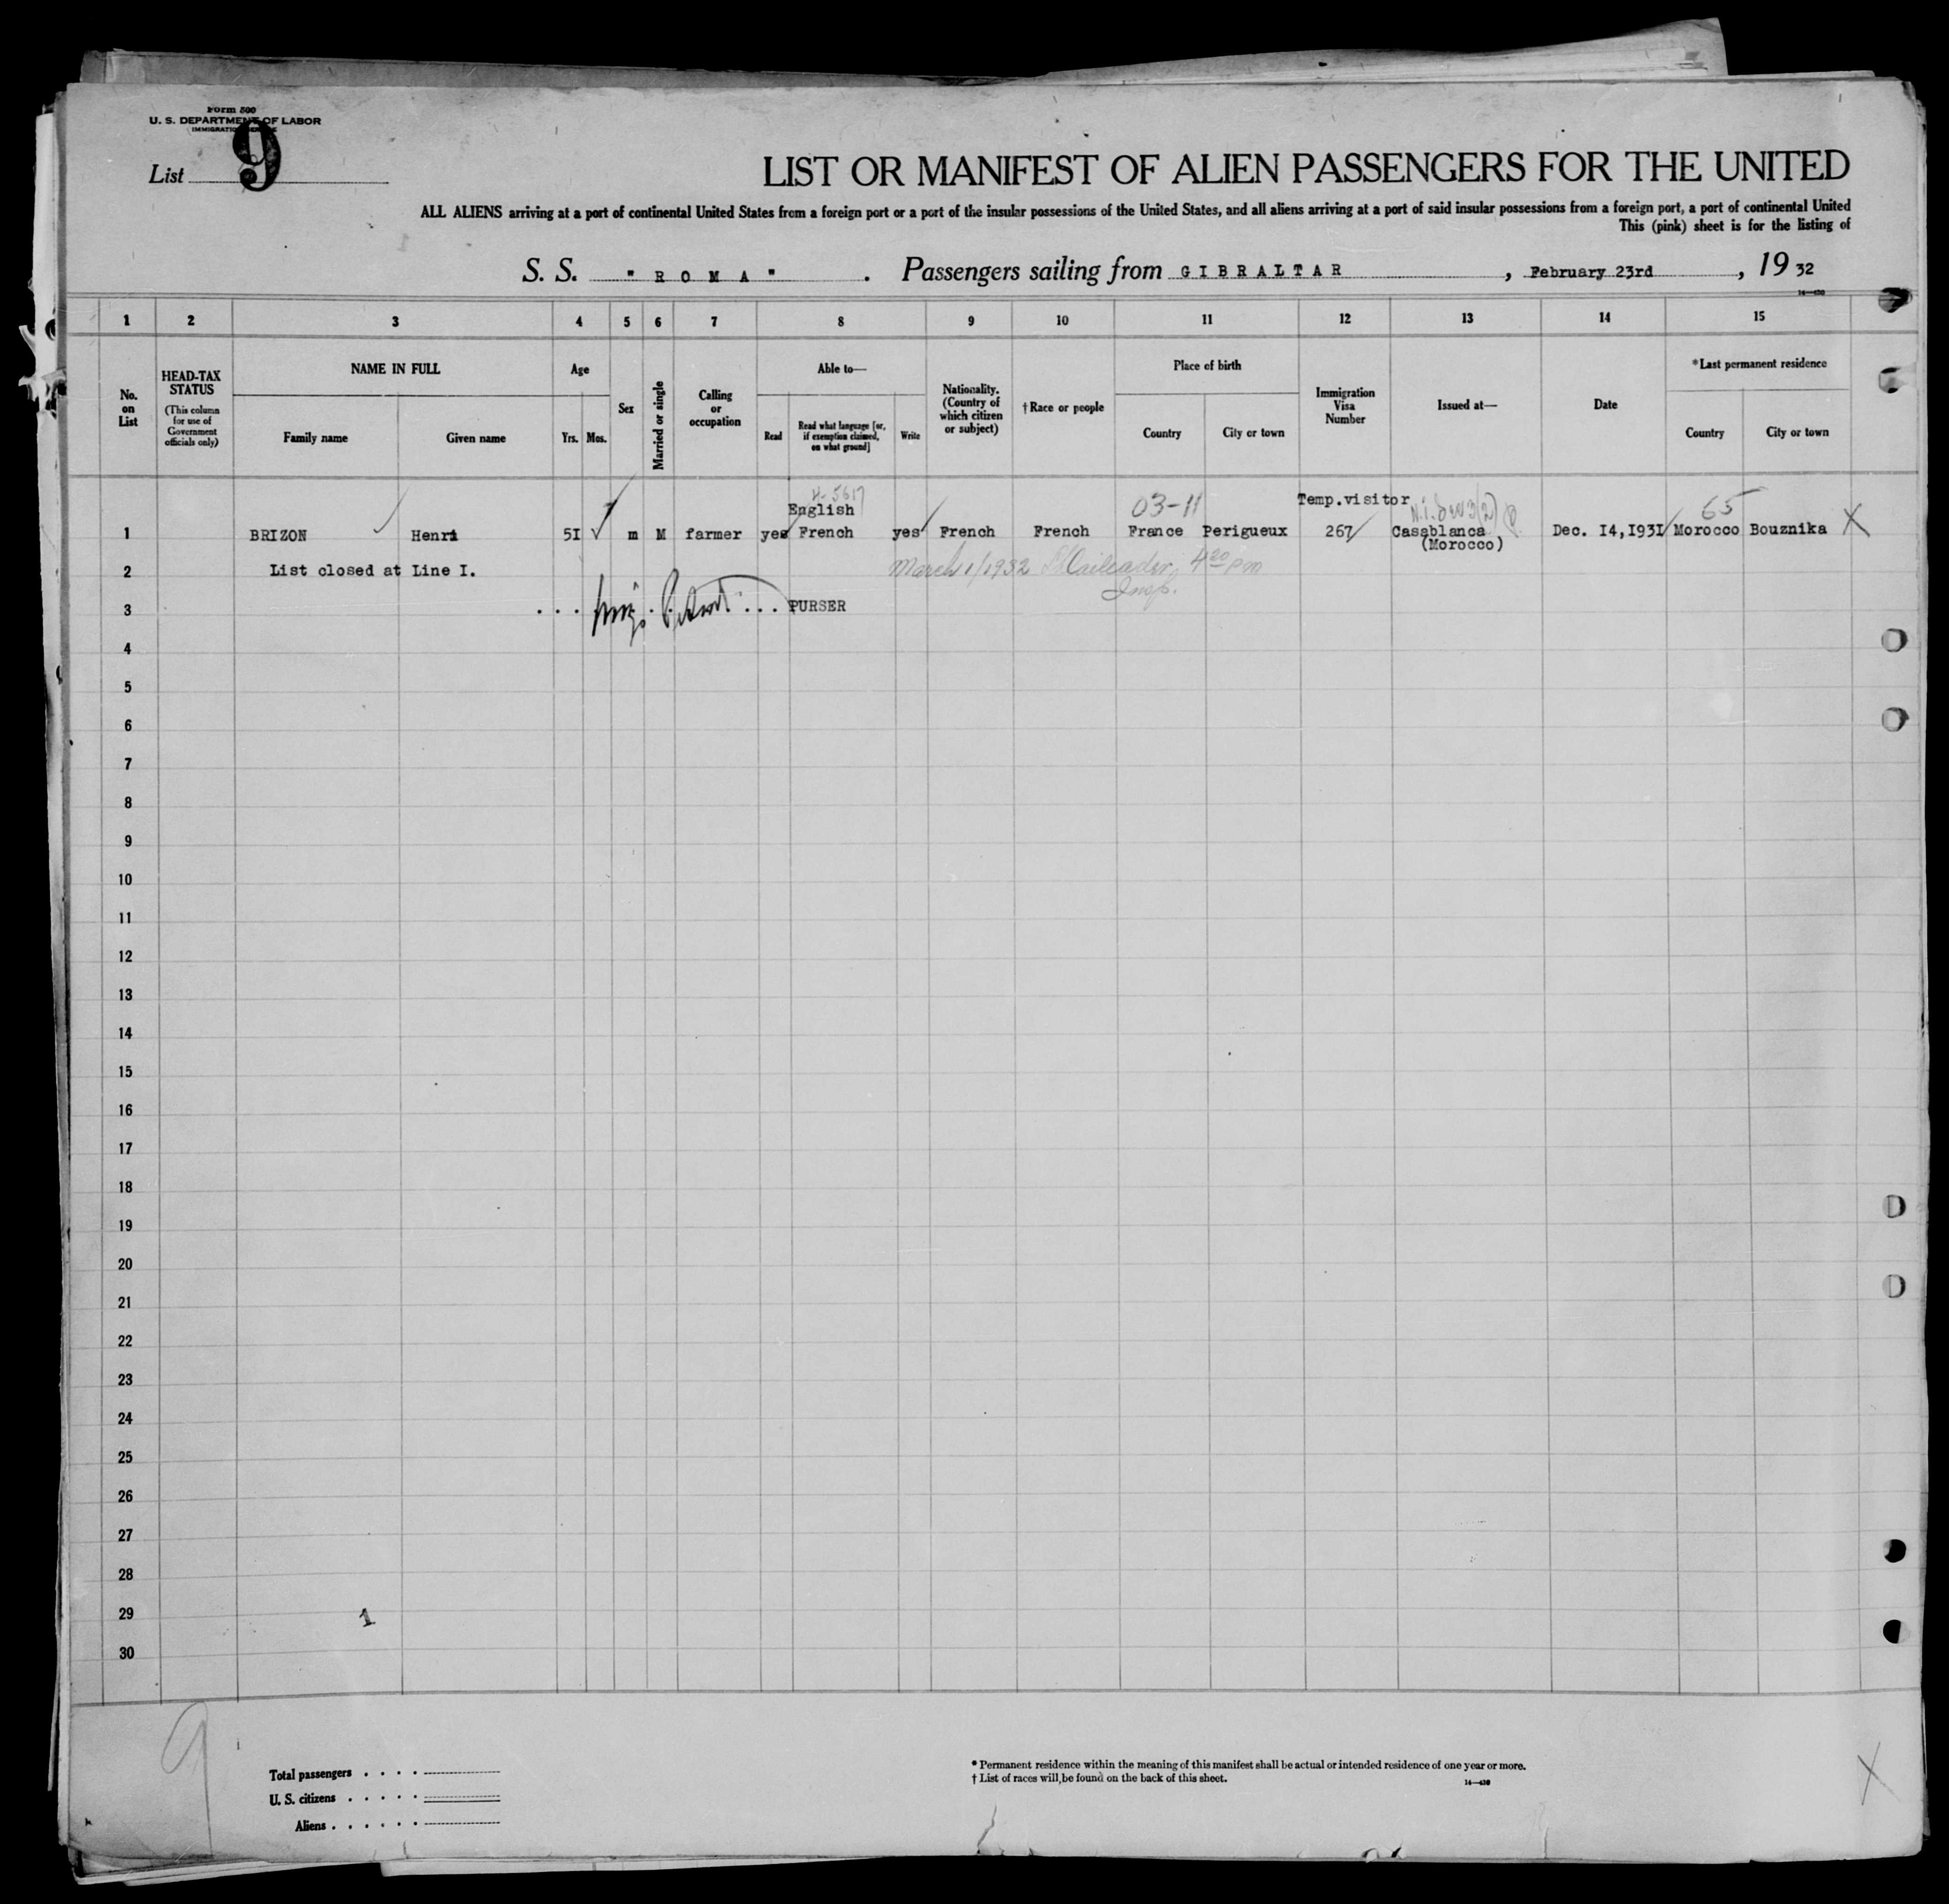 Form 500
U. S. DEPARTMENT OF LABOR
IMMIGRATION SERVICE
List 9
LIST OR MANIFEST OF ALIEN PASSENGERS FOR THE UNITED
ALL ALIENS arriving at a port of continental United States from a foreign port or a port of the insular possessions of the United States, and all aliens arriving at a port of said insular possessions from a foreign port, a port of continental United
This (pink) sheet is for the listing of
S. S. "ROMA". Passengers sailing from GIBRALTAR, February 23rd, 1932
1 2 3 4 5 6 7 8 9 10 11 12 13 14 15
No. on List
HEAD-TAX STATUS
(This column for use of Government officials only)
NAME IN FULL
Family name
Given name
Age
Yrs. Mos.
Sex
Married or single
Calling or occupation
Able to—
Read
Read what language [or, if exemption claimed, on what ground]
Write
Nationality. (Country of which citizen or subject)
†Race or people
Place of birth
Country
City or town
Immigration Visa Number
Issued at—
Date
*Last permanent residence
Country
City or town
English 03-11 Temp.visitor 65
1 BRIZON Henri 5I m M farmer yes French yes French French France Perigueux 267 Casablanca Dec. I4,I93I Morocco Bouznika X
(Morocco)
2 List closed at Line I. March 1/1932 4 20 pm
Insp.
3 PURSER
4
5
6
7
8
9
10
11
12
13
14
15
16
17
18
19
20
21
22
23
24
25
26
27
28
29 1
30
9
Total passengers
U. S. citizens
Aliens
* Permanent residence within the meaning of this manifest shall be actual or intended residence of one year or more.
† List of races will be found on the back of this sheet.
X